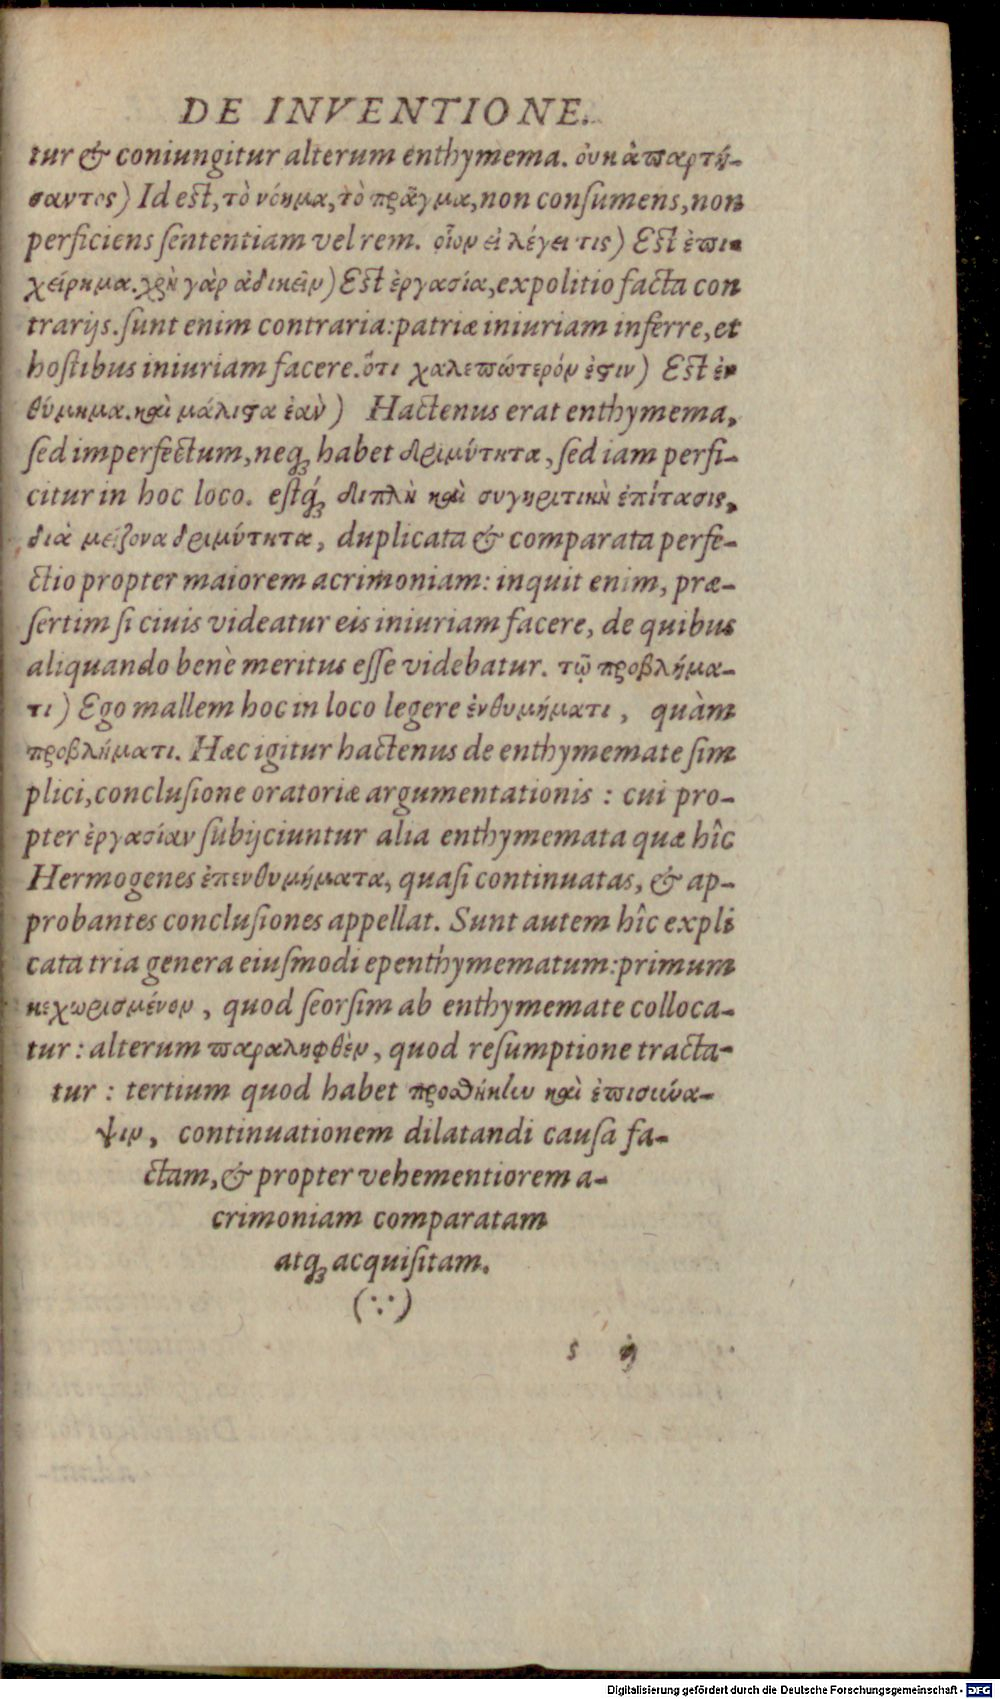 DE INVENTIONE.
tur & coniungitur alterum enthymema. οὐκ ἀπαρτή-
σαντος) Id est, τὸ νόημα, τὸ πρᾶγμα, non consumens, non
perficiens sententiam vel rem. οἷον εἰ λέγει τις) Est ἐπι-
χείρημα. χρὴ γὰρ ἀδικεῖν) Est ἐργασία, expolitio facta con
trarijs. sunt enim contraria: patriæ iniuriam inferre, et
hostibus iniuriam facere. ὅτι χαλεπώτερόν ἐστιν) Est ἐν
θύμημα. καὶ μάλιστα ἐὰν) Hactenus erat enthymema,
sed imperfectum, neqꝫ habet δριμύτητα, sed iam perfi-
citur in hoc loco. estqꝫ́ διπλὴ καὶ συγκριτικὴ ἐπίτασις,
διὰ μείζονα δριμύτητα, duplicata & comparata perfe-
ctio propter maiorem acrimoniam: inquit enim, præ-
sertim si ciuis videatur eis iniuriam facere, de quibus
aliquando benè meritus esse videbatur. τῷ προβλήμα-
τι) Ego mallem hoc in loco legere ἐνθυμήματι, quàm
προβλήματι. Hæc igitur hactenus de enthymemate sim
plici, conclusione oratoriæ argumentationis : cui pro-
pter ἐργασίαν subijciuntur alia enthymemata quæ hîc
Hermogenes ἐπενθυμήματα, quasi continuatas, & ap-
probantes conclusiones appellat. Sunt autem hîc expli
cata tria genera eiusmodi epenthymematum: primum
κεχωρισμένον, quod seorsim ab enthymemate colloca-
tur: alterum παραληφθὲν, quod resumptione tracta-
tur : tertium quod habet προσθήκην καὶ ἐπισύνα-
ψιν, continuationem dilatandi causa fa-
ctam, & propter vehementiorem a-
crimoniam comparatam
atqꝫ acquisitam.
(∵)
s ij
Digitalisierung gefördert durch die Deutsche Forschungsgemeinschaft - DFG